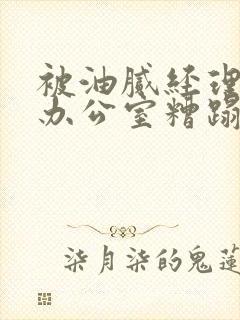 被油腻经理
办公室糟蹋
柒月柒的鬼莲